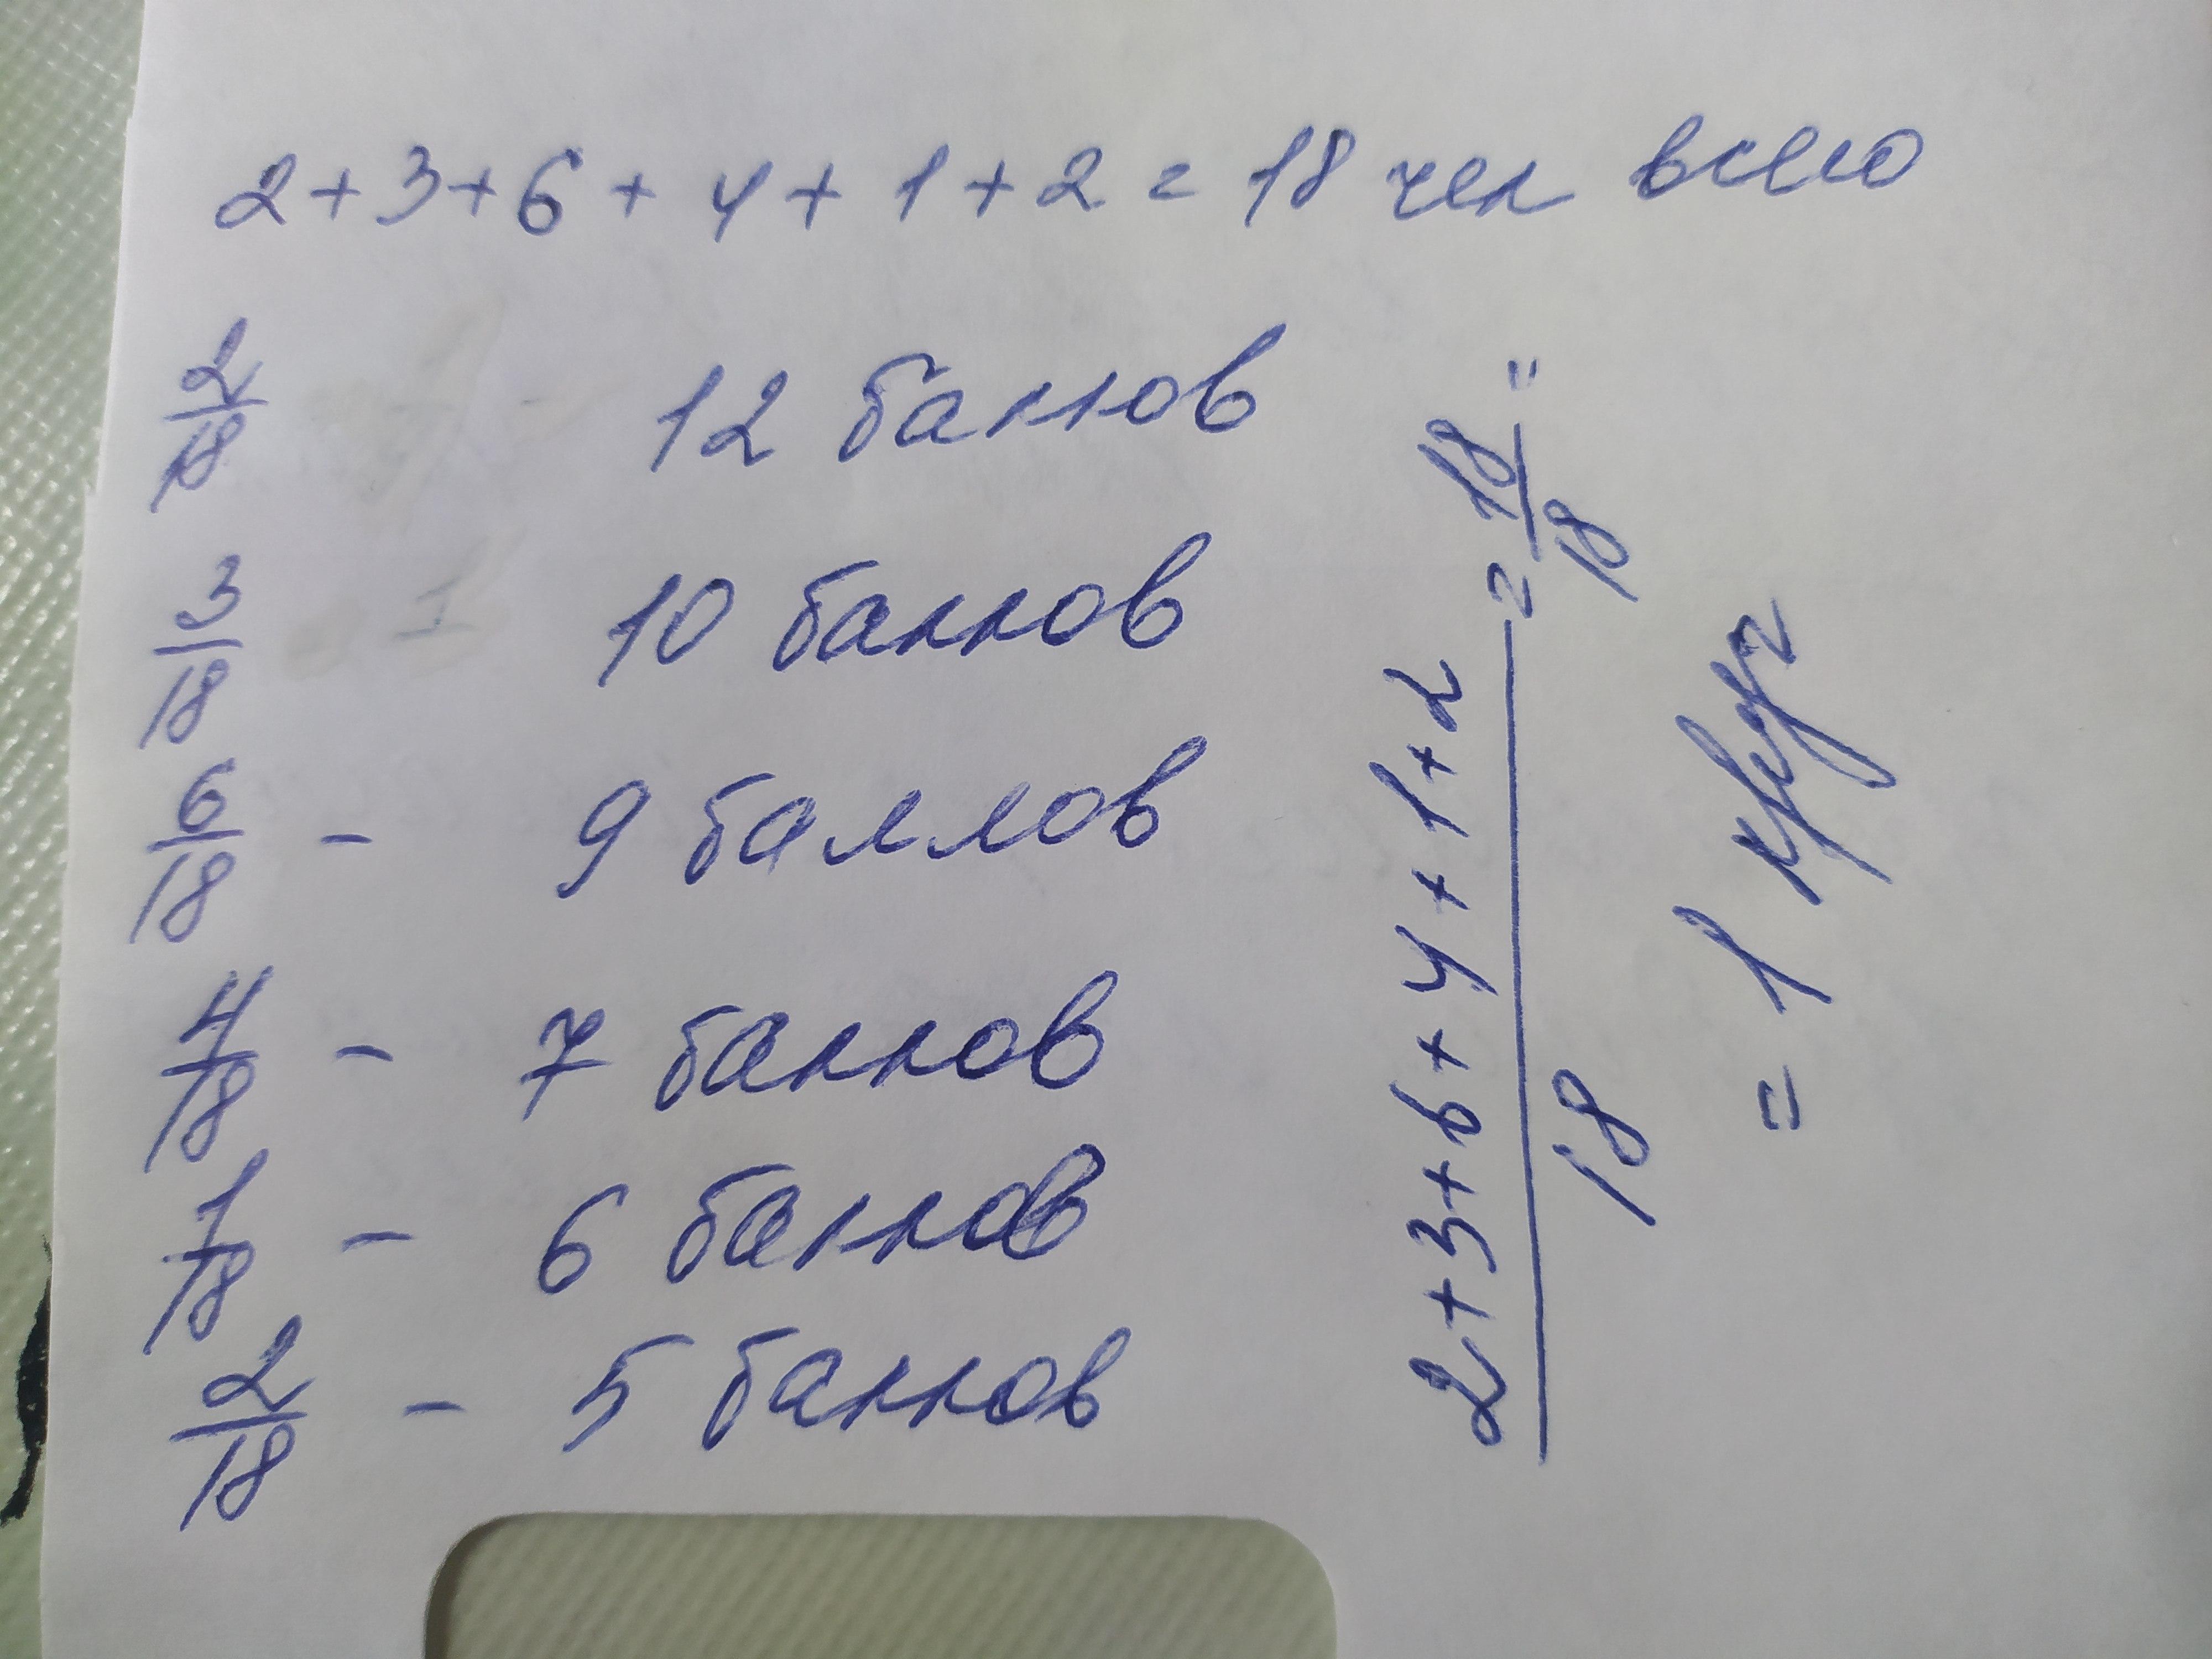 2+3+6+4+1+2=18 чел всего
2/18 - 12 баллов
3/18 10 баллов
6/18 - 9 баллов
4/18 - 7 баллов
1/18 - 6 баллов
2/18 - 5 баллов
2+3+6+4+1+2/18 = 18/18 =
= 1 круг